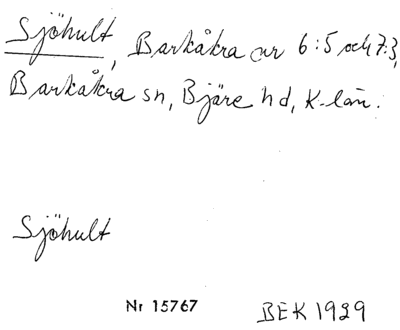 Sjöhult, Barkåkra av 6:5 och 7:3,
Barkåkra sn, Bjäre hd, K-län.
Sjöhult
Nr 15767 BEK 1929